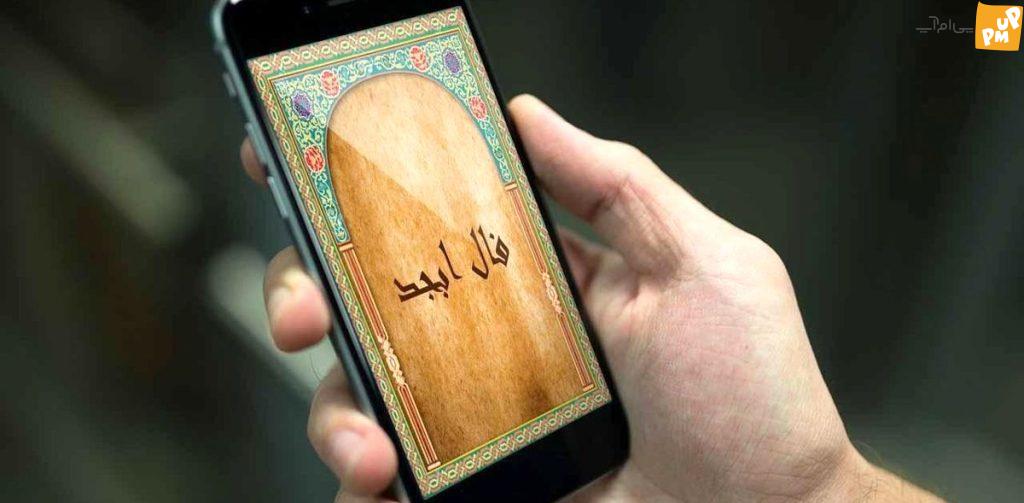 پی‌ام‌آپ
PM UP
فال ابجد